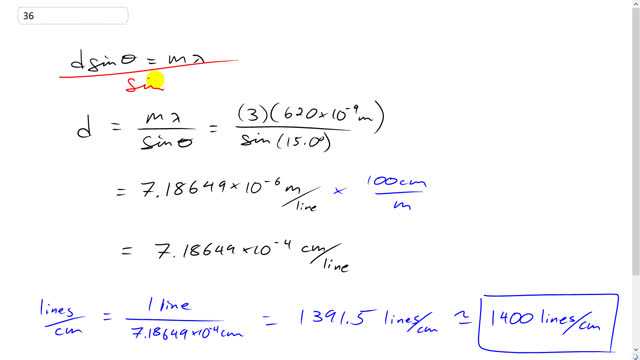 36
d sinθ = mλ
sin
d = mλ / sinθ = (3)(620×10⁻⁹ m) / sin(15.0°)
= 7.18649×10⁻⁶ m/line × 100cm/m
= 7.18649×10⁻⁴ cm/line
lines/cm = 1 line / 7.18649×10⁻⁴ cm = 1391.5 lines/cm ≈ 1400 lines/cm